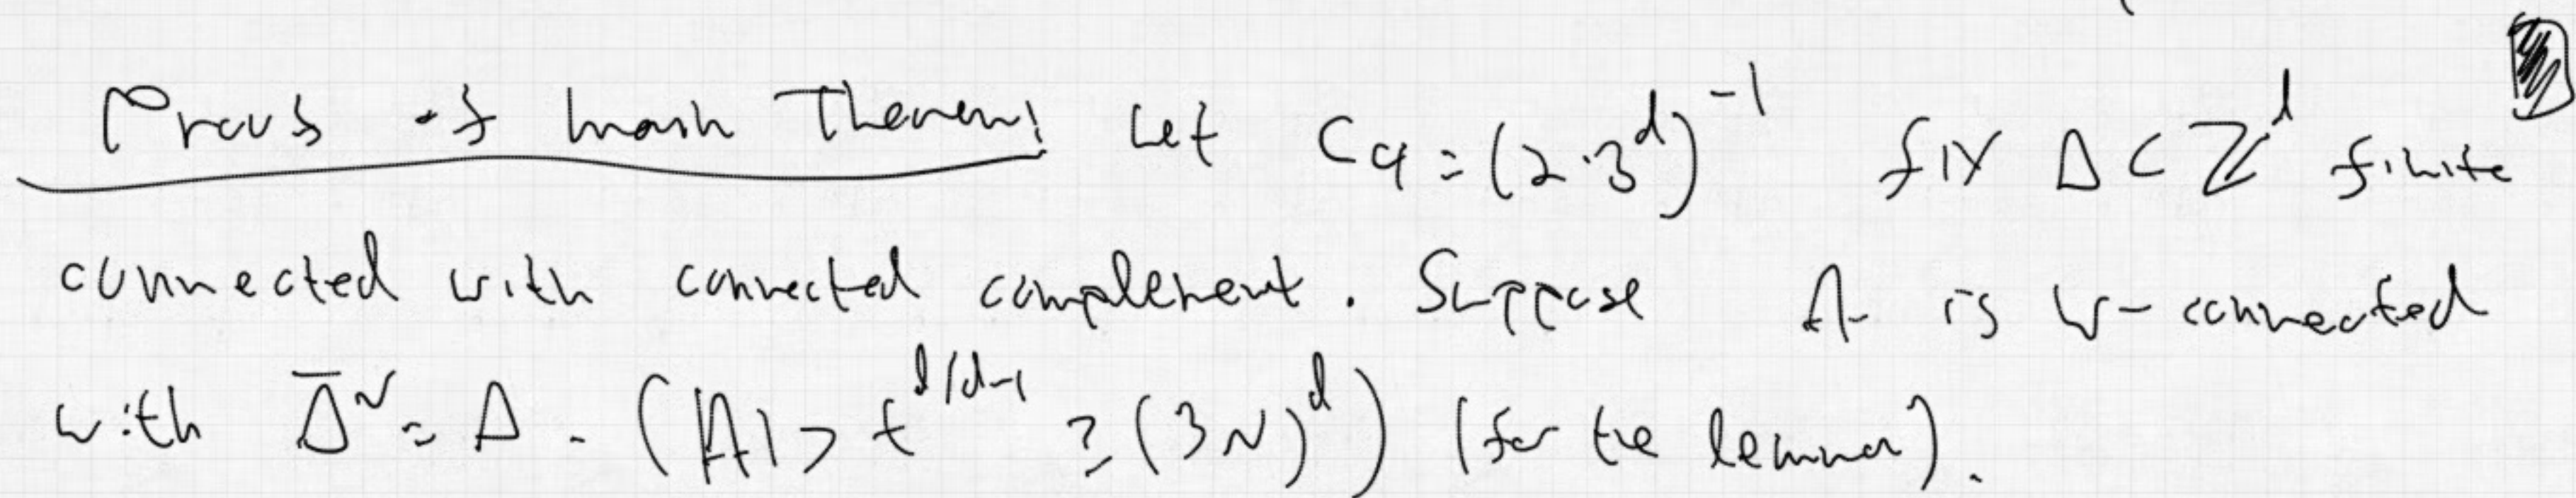 Proof of main Theorem: Let C_4 = (2·3^d)^{-1} fix Δ ⊂ ℤ^d finite
connected with connected complement. Suppose A is N-connected
with \overline{Δ}^N = Δ. (|A| > t^{d/d-1} ≥ (3N)^d) (for the lemma).